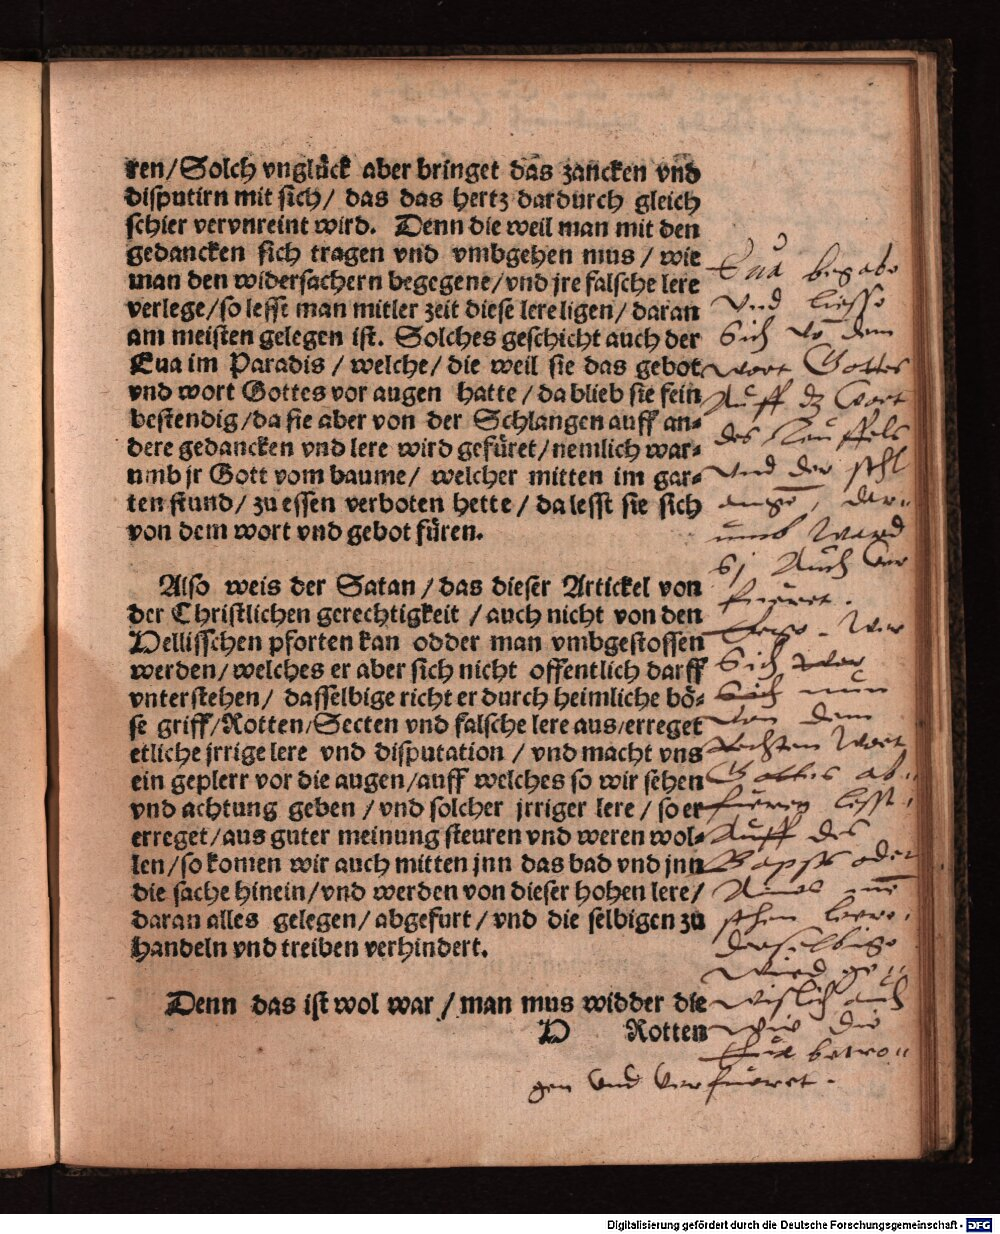 ren/Solch vnglück aber bringet das zancken vnd
disputirn mit sich/ das das hertz dardurch gleich
schier vervnreint wird. Denn die weil man mit den
gedancken sich tragen vnd vmbgehen mus/ wie
man den widersachern begegene/vnd jre falsche lere
verlege/so lesst man mitler zeit diese lere ligen/ daran
am meisten gelegen ist. Solches geschicht auch der
Eua im Paradis/ welche/ die weil sie das gebot
vnd wort Gottes vor augen hatte/ da blieb sie fein
bestendig/da sie aber von der Schlangen auff an-
dere gedancken vnd lere wird gefüret/nemlich war-
umb jr Gott vom baume/ welcher mitten im gar-
ten stund/ zu essen verboten hette/ da lesst sie sich
von dem wort vnd gebot füren.
Also weis der Satan/das dieser Artickel von
der Christlichen gerechtigkeit/auch nicht von den
Hellisschen pforten kan odder mag vmbgestossen
werden/welches er aber sich nicht offentlich darff
vnterstehen/ dasselbige richt er durch heimliche bö-
se griff/Rotten/Secten vnd falsche lere aus/erreget
etliche jrrige lere vnd disputation/ vnd macht vns
ein geplerr vor die augen/auff welches so wir sehen
vnd achtung geben/vnd solcher jrriger lere/so er
erreget/aus guter meinung steuren vnd weren wol-
len/so komen wir auch mitten jnn das bad vnd jnn
die sache hinein/vnd werden von dieser hohen lere/
daran alles gelegen/abgefurt/vnd die selbigen zu
handeln vnd treiben verhindert.
Denn das ist wol war/man mus widder die
H Rotten
Eua begabe
vnd liesse
Sich vo dem
wort Gottes
Auff dz Wort
des Teuffels
vnd der schl
ange, dar-
umb Ward
si Auch ver
fueret.
Ergo. Wer
Sich
nun
von dem
rechten Wort
Gottes ab-
fueren lesst,
Auff des
Bapsts oder
schen leere,
derselbige
Wird ge-
wislich auch
wie die
Eua betro-
gen vnd verfueret.
Digitalisierung gefördert durch die Deutsche Forschungsgemeinschaft - DFG